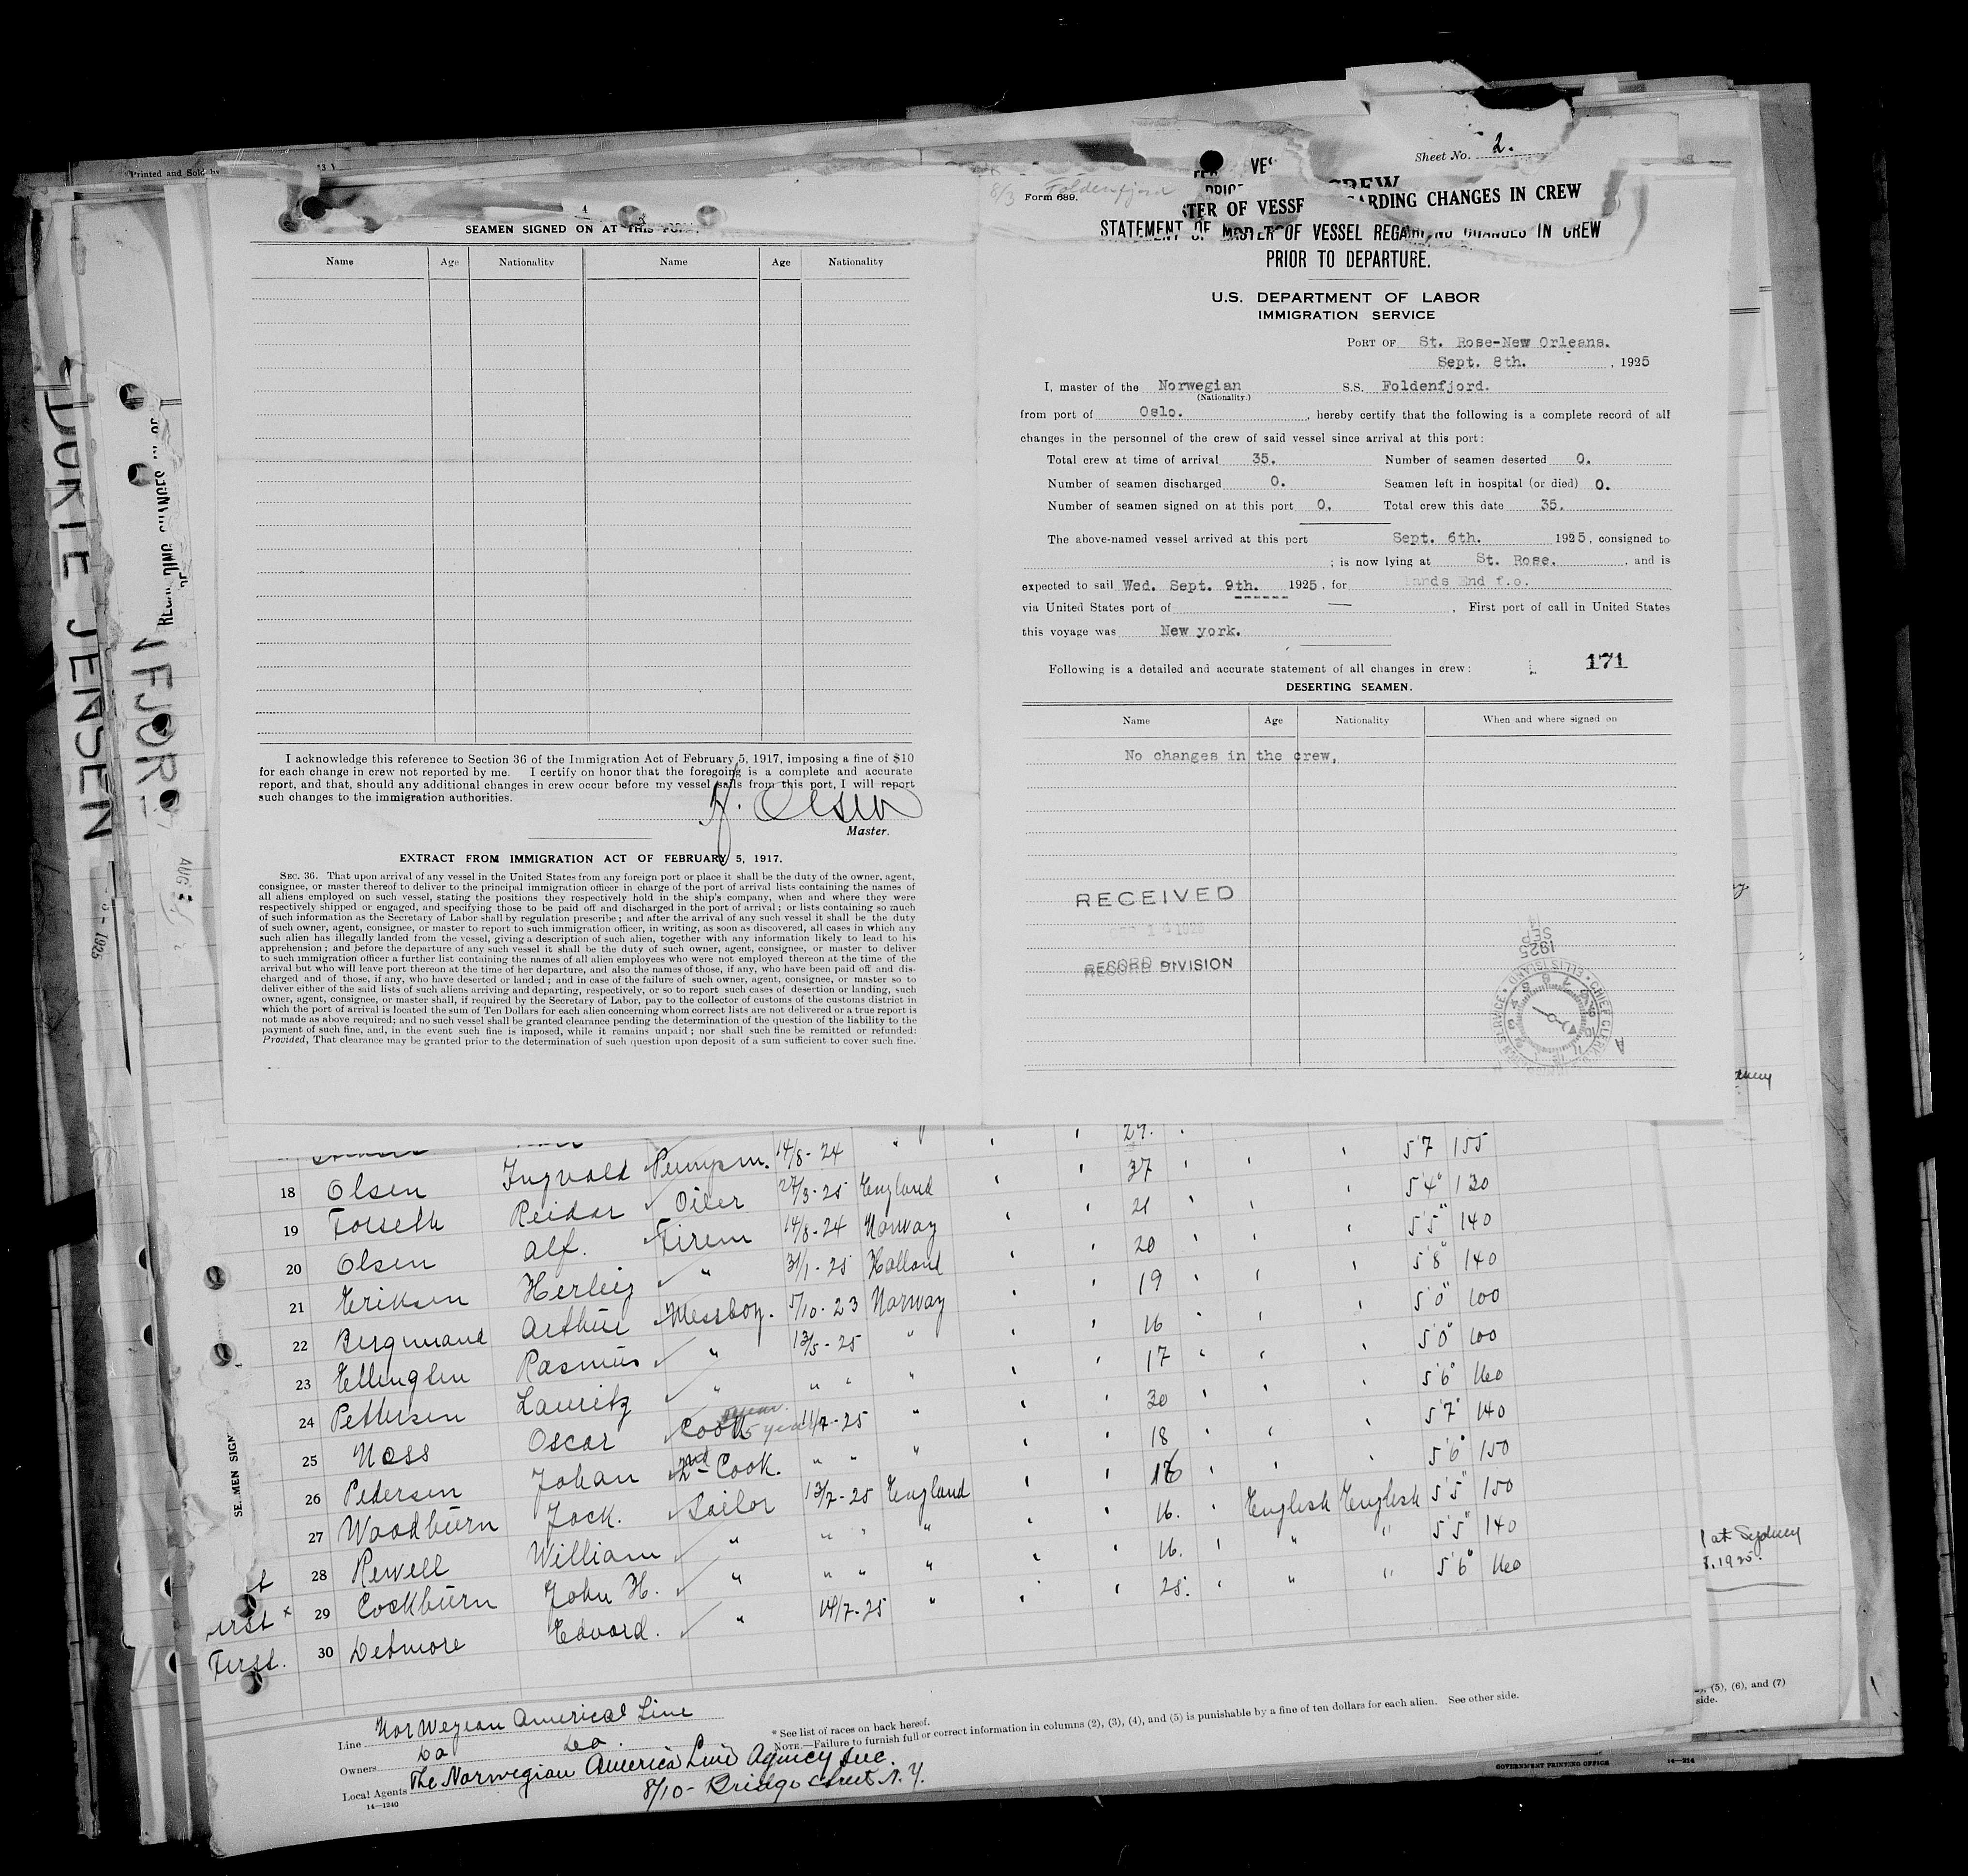 Printed and Sold by
Sheet No. 2.
8/3 Foldenfjord
Form 689.
CREW
STER OF VESSE ARDING CHANGES IN CREW
STATEMENT OF MASTER OF VESSEL REGARDING CHANGES IN CREW
PRIOR TO DEPARTURE.
U.S. DEPARTMENT OF LABOR
IMMIGRATION SERVICE
PORT OF St. Rose-New Orleans.
Sept. 8th. , 1925
I, master of the Norwegian S.S. Foldenfjord.
(Nationality.)
from port of Oslo. , hereby certify that the following is a complete record of all
changes in the personnel of the crew of said vessel since arrival at this port:
Total crew at time of arrival 35. Number of seamen deserted 0.
Number of seamen discharged 0. Seamen left in hospital (or died) 0.
Number of seamen signed on at this port 0. Total crew this date 35.
The above-named vessel arrived at this port Sept. 6th. 1925, consigned to
; is now lying at St. Rose. , and is
expected to sail Wed. Sept. 9th. 1925, for lands End f.o.
via United States port of — . First port of call in United States
this voyage was New york.
Following is a detailed and accurate statement of all changes in crew:
171
DESERTING SEAMEN.
Name Age Nationality When and where signed on
No changes in the crew,
RECEIVED
RECORD DIVISION
SEP
1925
CHIEF CLERK
ELLIS ISLAND
SEAMEN SIGNED ON AT THIS PORT.
Name Age Nationality Name Age Nationality
I acknowledge this reference to Section 36 of the Immigration Act of February 5, 1917, imposing a fine of $10
for each change in crew not reported by me. I certify on honor that the foregoing is a complete and accurate
report, and that, should any additional changes in crew occur before my vessel sails from this port, I will report
such changes to the immigration authorities.
Olsen
Master.
EXTRACT FROM IMMIGRATION ACT OF FEBRUARY 5, 1917.
SEC. 36. That upon arrival of any vessel in the United States from any foreign port or place it shall be the duty of the owner, agent,
consignee, or master thereof to deliver to the principal immigration officer in charge of the port of arrival lists containing the names of
all aliens employed on such vessel, stating the positions they respectively hold in the ship's company, when and where they were
respectively shipped or engaged, and specifying those to be paid off and discharged in the port of arrival; or lists containing so much
of such information as the Secretary of Labor shall by regulation prescribe; and after the arrival of any such vessel it shall be the duty
of such owner, agent, consignee, or master to report to such immigration officer, in writing, as soon as discovered, all cases in which any
such alien has illegally landed from the vessel, giving a description of such alien, together with any information likely to lead to his
apprehension; and before the departure of any such vessel it shall be the duty of such owner, agent, consignee, or master to deliver
to such immigration officer a further list containing the names of all alien employees who were not employed thereon at the time of the
arrival but who will leave port thereon at the time of her departure, and also the names of those, if any, who have been paid off and dis-
charged and of those, if any, who have deserted or landed; and in case of the failure of such owner, agent, consignee, or master so to
deliver either of the said lists of such aliens arriving and departing, respectively, or so to report such cases of desertion or landing, such
owner, agent, consignee, or master shall, if required by the Secretary of Labor, pay to the collector of customs of the customs district in
which the port of arrival is located the sum of Ten Dollars for each alien concerning whom correct lists are not delivered or a true report is
not made as above required; and no such vessel shall be granted clearance pending the determination of the question of the liability to the
payment of such fine, and, in the event such fine is imposed, while it remains unpaid; nor shall such fine be remitted or refunded:
Provided, That clearance may be granted prior to the determination of such question upon deposit of a sum sufficient to cover such fine.
JENSEN
NFJORD
AUG
1925
29.
18 Olsen Ingvald Pumpm. 14/8-24 37 5'7 155
19 Forseth Reidar Oiler 27/3-25 England 21 5'4" 130
20 Olsen Alf. Firem 14/8-24 Norway 20 5'5" 140
21 Eriksen Herleig " 31/1-25 Holland 19 5'8" 140
22 Bergmand Arthur Messboy. 5/10-23 Norway 16 5'0" 100
23 Ellingsen Rasmus " 13/5-25 " 17 5'0" 100
24 Pettersen Lauritz " " " " 30 5'6" 160
25 Noss Oscar Cook 5 year 11/7-25 " 18 5'7" 140
26 Pedersen Johan 2nd Cook. " " " 16 5'6" 150
27 Woodburn Jock. Sailor 13/7-25 England 16. English English 5'5" 150
28 Rewell William " " " " 16. " " 5'5" 140
29 Cockburn John H. " " " " 25. " " 5'6" 160
30 Detmore Edvard. " 14/7-25 "
First.
SEAMEN SIGN
Line Norwegian Americal Line
Owners Do Do.
Local Agents The Norwegian America Line Agency Inc.
8/10 - Bridge Street N.Y.
14—1240
* See list of races on back hereof.
NOTE.—Failure to furnish full or correct information in columns (2), (3), (4), and (5) is punishable by a fine of ten dollars for each alien. See other side.
at Sydney
1925.
(5), (6), and (7)
side.
GOVERNMENT PRINTING OFFICE 14—214